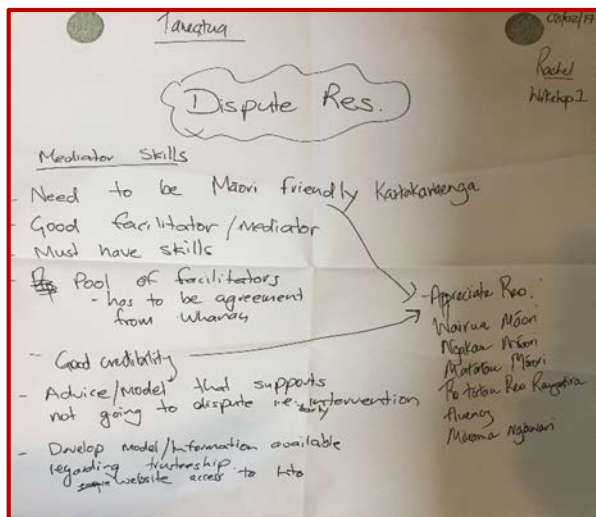 Taneatua
08/02/17
Rachel
Wrkshop 1
Dispute Res.
Mediator Skills
- Need to be Māori friendly
- Good facilitator/Mediator
- Must have skills
- Pool of facilitators
- has to be agreement
from whanau
- Good credibility
- Advice/Model that supports
not going to dispute i.e. early intervention
- Develop Model/Information available
regarding trusteeship
website access to
- Appreciate Reo.
Wairua Māori
Ngakau Māori
Matatau Māori
Reo Rangatira
fluency
Mārama